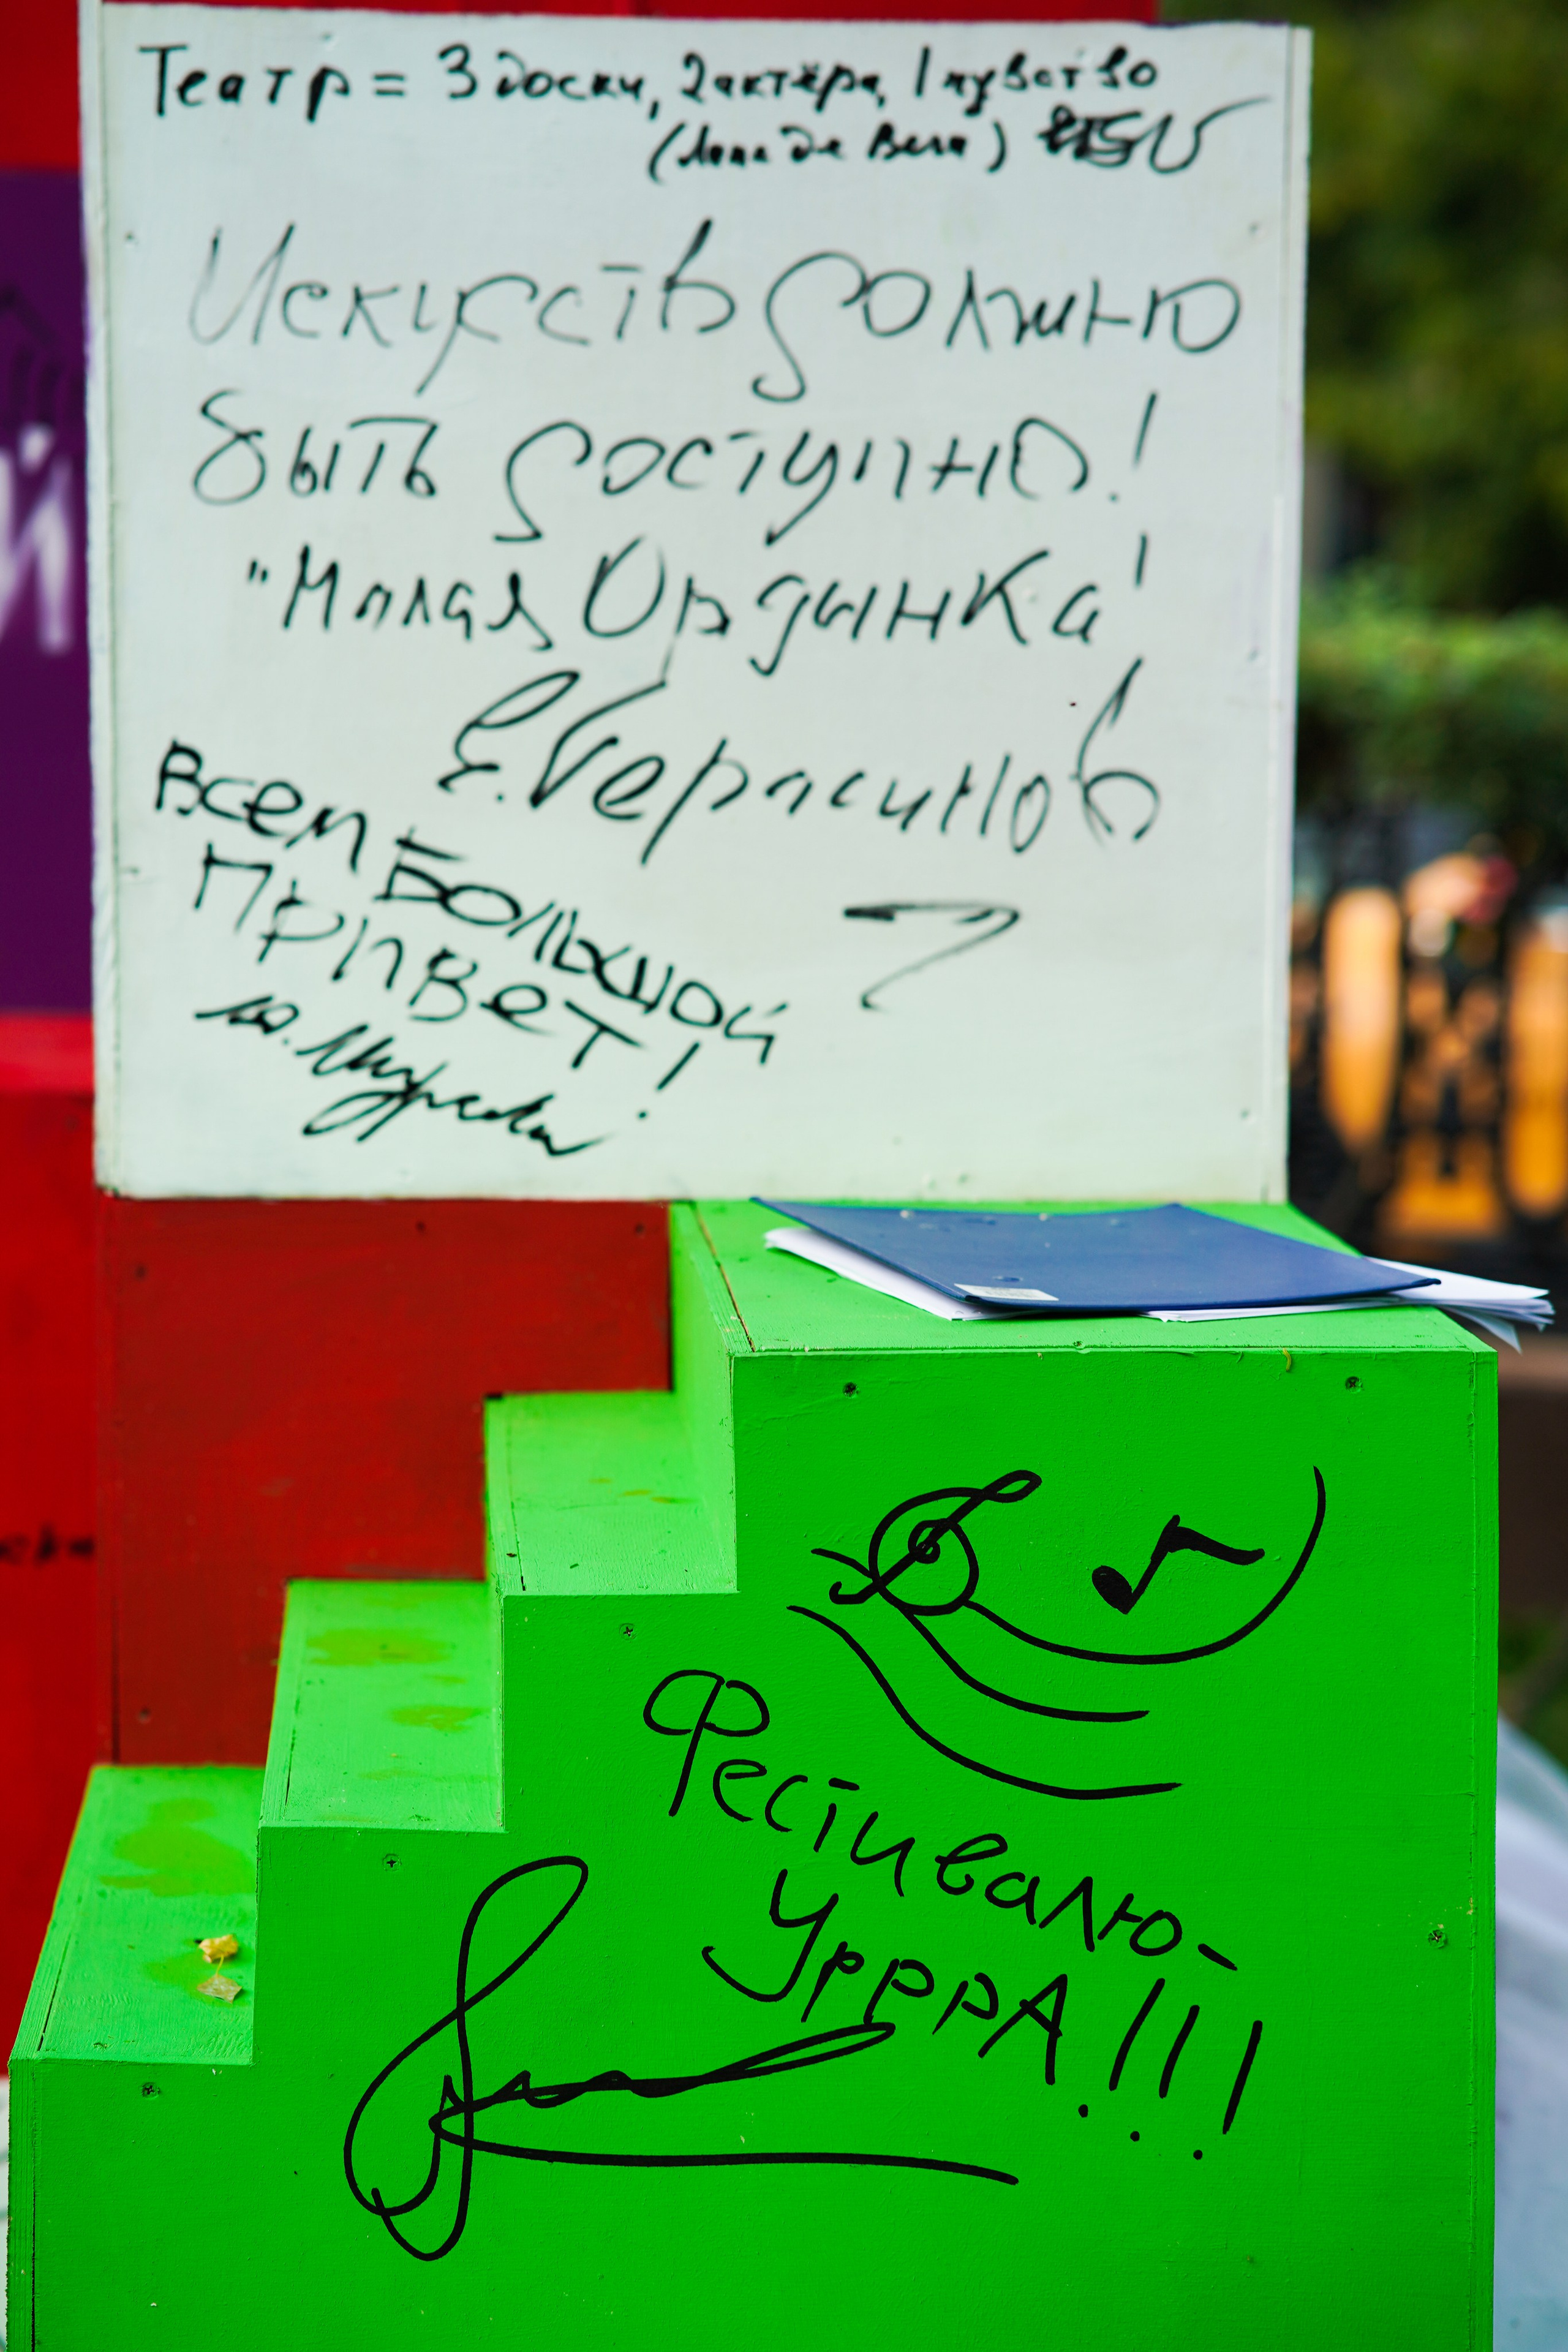 Театр = 3 доски, 2 актёра, 1 чувство
(Лопе де Вега)
Искусств должно
быть доступно!
"Милая Ордынка"!
Е. Герасимов
Всем Большой
Привет!
Ю.
Фестивалю-
УрррА!!!
й